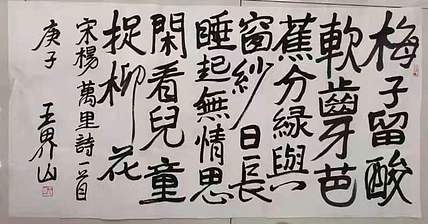 梅子留酸
軟齒牙芭
蕉分緑與
窗紗日長
睡起無情思
閑看兒童
捉柳花
宋楊萬里詩一首
庚子 王界山